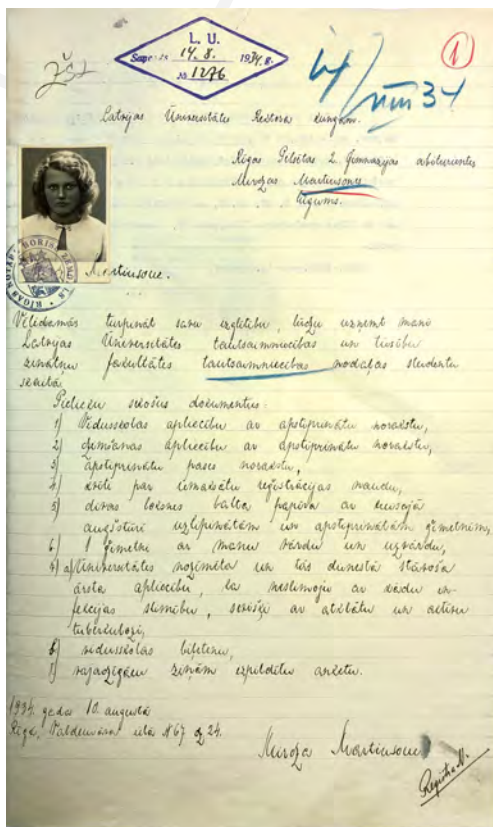 L. U.
Saņemts 14. 8. 1934. g.
№ 1276
1
14/VIII 34
Latvijas Universitātes Rektora kungam.
Rīgas Pilsētas 2. ģimnāzijas abiturientes
Mirdzas Martinsones
lūgums.
Martinsone.
Vēlēdamās turpināt savu izglītību, lūdzu uzņemt mani
Latvijas Universitātes tautsaimniecības un tiesību
zinātņu fakultātes tautsaimniecības nodaļas studentu
skaitā.
Pielieku sekošus dokumentus:
1) Vidusskolas apliecību ar apstiprinātu norakstu,
2) dzimšanas apliecību ar apstiprinātu norakstu,
3) apstiprinātu pases norakstu,
4) kvīti par iemaksātu reģistrācijas naudu,
5) divas loksnes balta papīra ar kreisajā
augšstūrī uzlipinātām un apstiprinātām ģīmetnēm,
6) 1 ģīmetni ar manu vārdu un uzvārdu,
7) a) Universitātes nozīmēta un tās dienestā stāvoša
ārsta apliecību, ka neslimoju ar kādu in-
fekcijas slimību, sevišķi ar atklātu un aktīvu
tuberkulozi,
8) vidusskolas biļetenu,
9) vajadzīgām ziņām izpildītu anketu.
1934. gada 10. augustā
Rīgā, Valdemāra ielā №67 dz 24.
Mirdza Martinsone